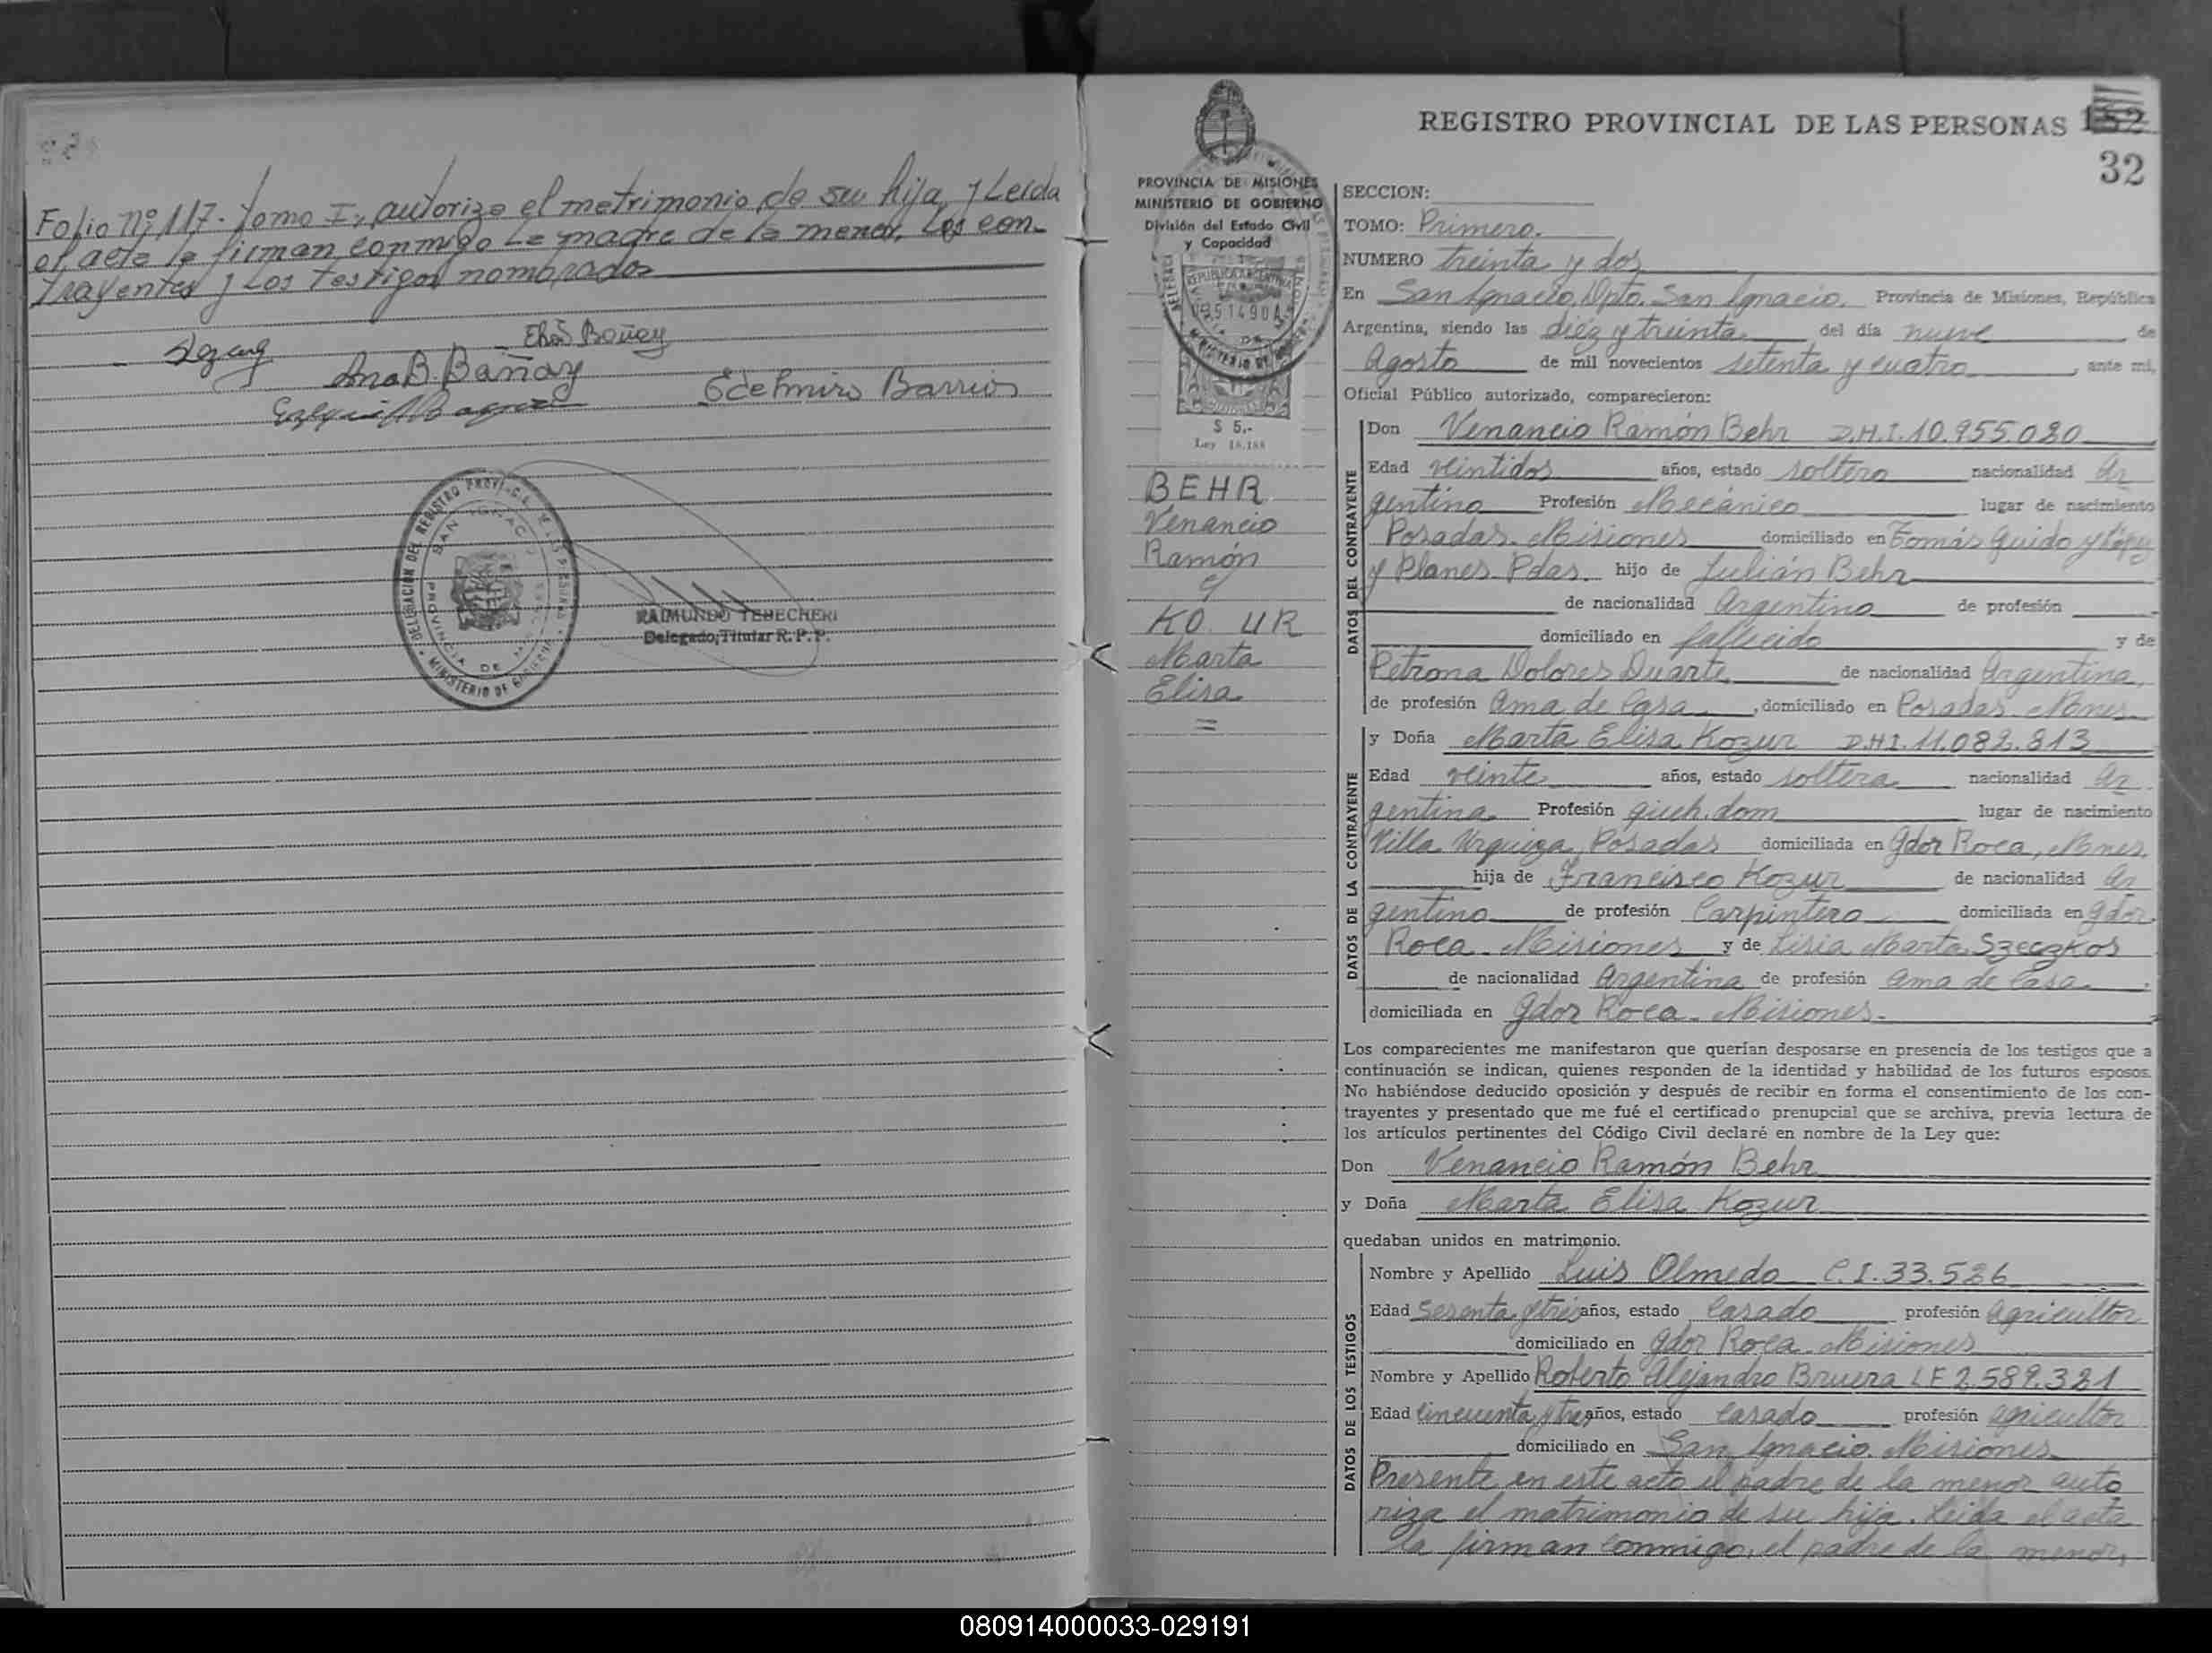 Folio Nº 117. Tomo I, autoriza el metrimonio de su hija, y Leida
el acta la firman conmigo la madre de la menor, los con-
trayentes y los testigos nombrados
Elsa Bañay
Ana B. Bañay
Edelmiro Barrios
DELEGACION DEL REGISTRO PROVINCIAL DE LAS PERSONAS
SAN IGNACIO
PROVINCIA DE MISIONES
MINISTERIO DE GOBIERNO
RAIMUNDO TEHECHERI
Delegado Titular R. P. P.
REGISTRO PROVINCIAL DE LAS PERSONAS
32
PROVINCIA DE MISIONES
MINISTERIO DE GOBIERNO
División del Estado Civil
y Capacidad
REPUBLICA ARGENTINA
$ 5.-
Ley 18.188
BEHR
Venancio
Ramón
y
KO UR
Marta
Elisa
=
SECCION:
TOMO: Primero.
NUMERO treinta y dos
En San Ignacio, Dpto. San Ignacio, Provincia de Misiones, República
Argentina, siendo las diéz y treinta del día nueve de
Agosto de mil novecientos setenta y cuatro, ante mi,
Oficial Público autorizado, comparecieron:
DATOS DEL CONTRAYENTE
Don Venancio Ramón Behr D.N.I. 10.955.080
Edad veintidos años, estado soltero nacionalidad Ar
gentino Profesión Mecánico lugar de nacimiento
Posadas. Misiones domiciliado en Tomás Guido y López
y Planes Pdas. hijo de Julián Behr
de nacionalidad Argentino de profesión
domiciliado en fallecido y de
Petrona Dolores Duarte de nacionalidad Argentina,
de profesión Ama de Casa, domiciliado en Posadas. Mnes.
DATOS DE LA CONTRAYENTE
y Doña Marta Elisa Kozur D.N.I. 11.082.813
Edad veinte años, estado soltera nacionalidad Ar
gentina Profesión queh. dom lugar de nacimiento
Villa Urquiza, Posadas domiciliada en Gdor Roca, Mnes.
hija de Francisco Kozur de nacionalidad Ar
gentino de profesión Carpintero domiciliada en Gdor.
Roca. Misiones y de Lisia Marta Szeczkos
de nacionalidad Argentina de profesión Ama de Casa.
domiciliada en Gdor Roca. Misiones.
Los comparecientes me manifestaron que querían desposarse en presencia de los testigos que a
continuación se indican, quienes responden de la identidad y habilidad de los futuros esposos.
No habiéndose deducido oposición y después de recibir en forma el consentimiento de los con-
trayentes y presentado que me fué el certificado prenupcial que se archiva, previa lectura de
los artículos pertinentes del Código Civil declaré en nombre de la Ley que:
Don Venancio Ramón Behr
y Doña Marta Elisa Kozur
quedaban unidos en matrimonio.
DATOS DE LOS TESTIGOS
Nombre y Apellido Luis Olmedo C.I. 33.526
Edad Sesenta y tres años, estado Casado profesión Agricultor
domiciliado en Gdor Roca. Misiones
Nombre y Apellido Roberto Alejandro Bruera LE 2.589.321
Edad Cincuenta y tres años, estado Casado profesión agricultor
domiciliado en San Ignacio. Misiones
Presente en este acto el padre de la menor auto
riza el matrimonio de su hija. Leida el acta
la firman conmigo, el padre de la menor,
080914000033-029191